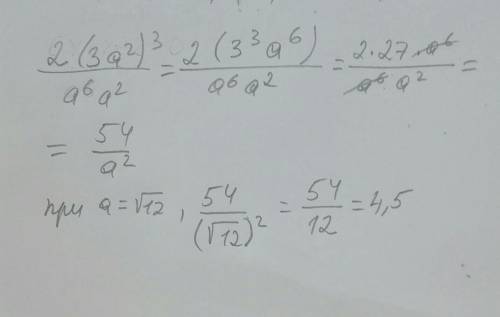 2(3a²)³/a⁶a² = 2(3³a⁶)/a⁶a² = 2·27·a⁶/a⁶a² =
= 54/a²
при a = √12, 54/(√12)² = 54/12 = 4,5